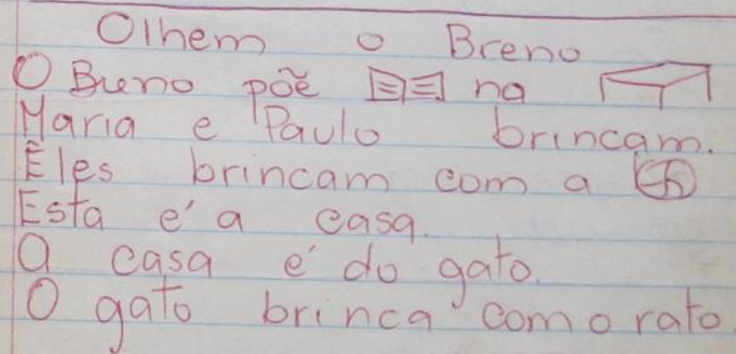 Olhem o Breno
O Breno põe na
Maria e Paulo brincam.
Êles brincam com a
Esta é a casa.
A casa é do gato.
O gato brinca com o rato